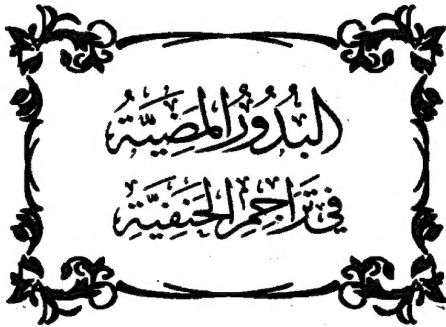 البُدُورُ المَضِيَّة
في تَرَاجِمِ الحَنَفِيَّةِ